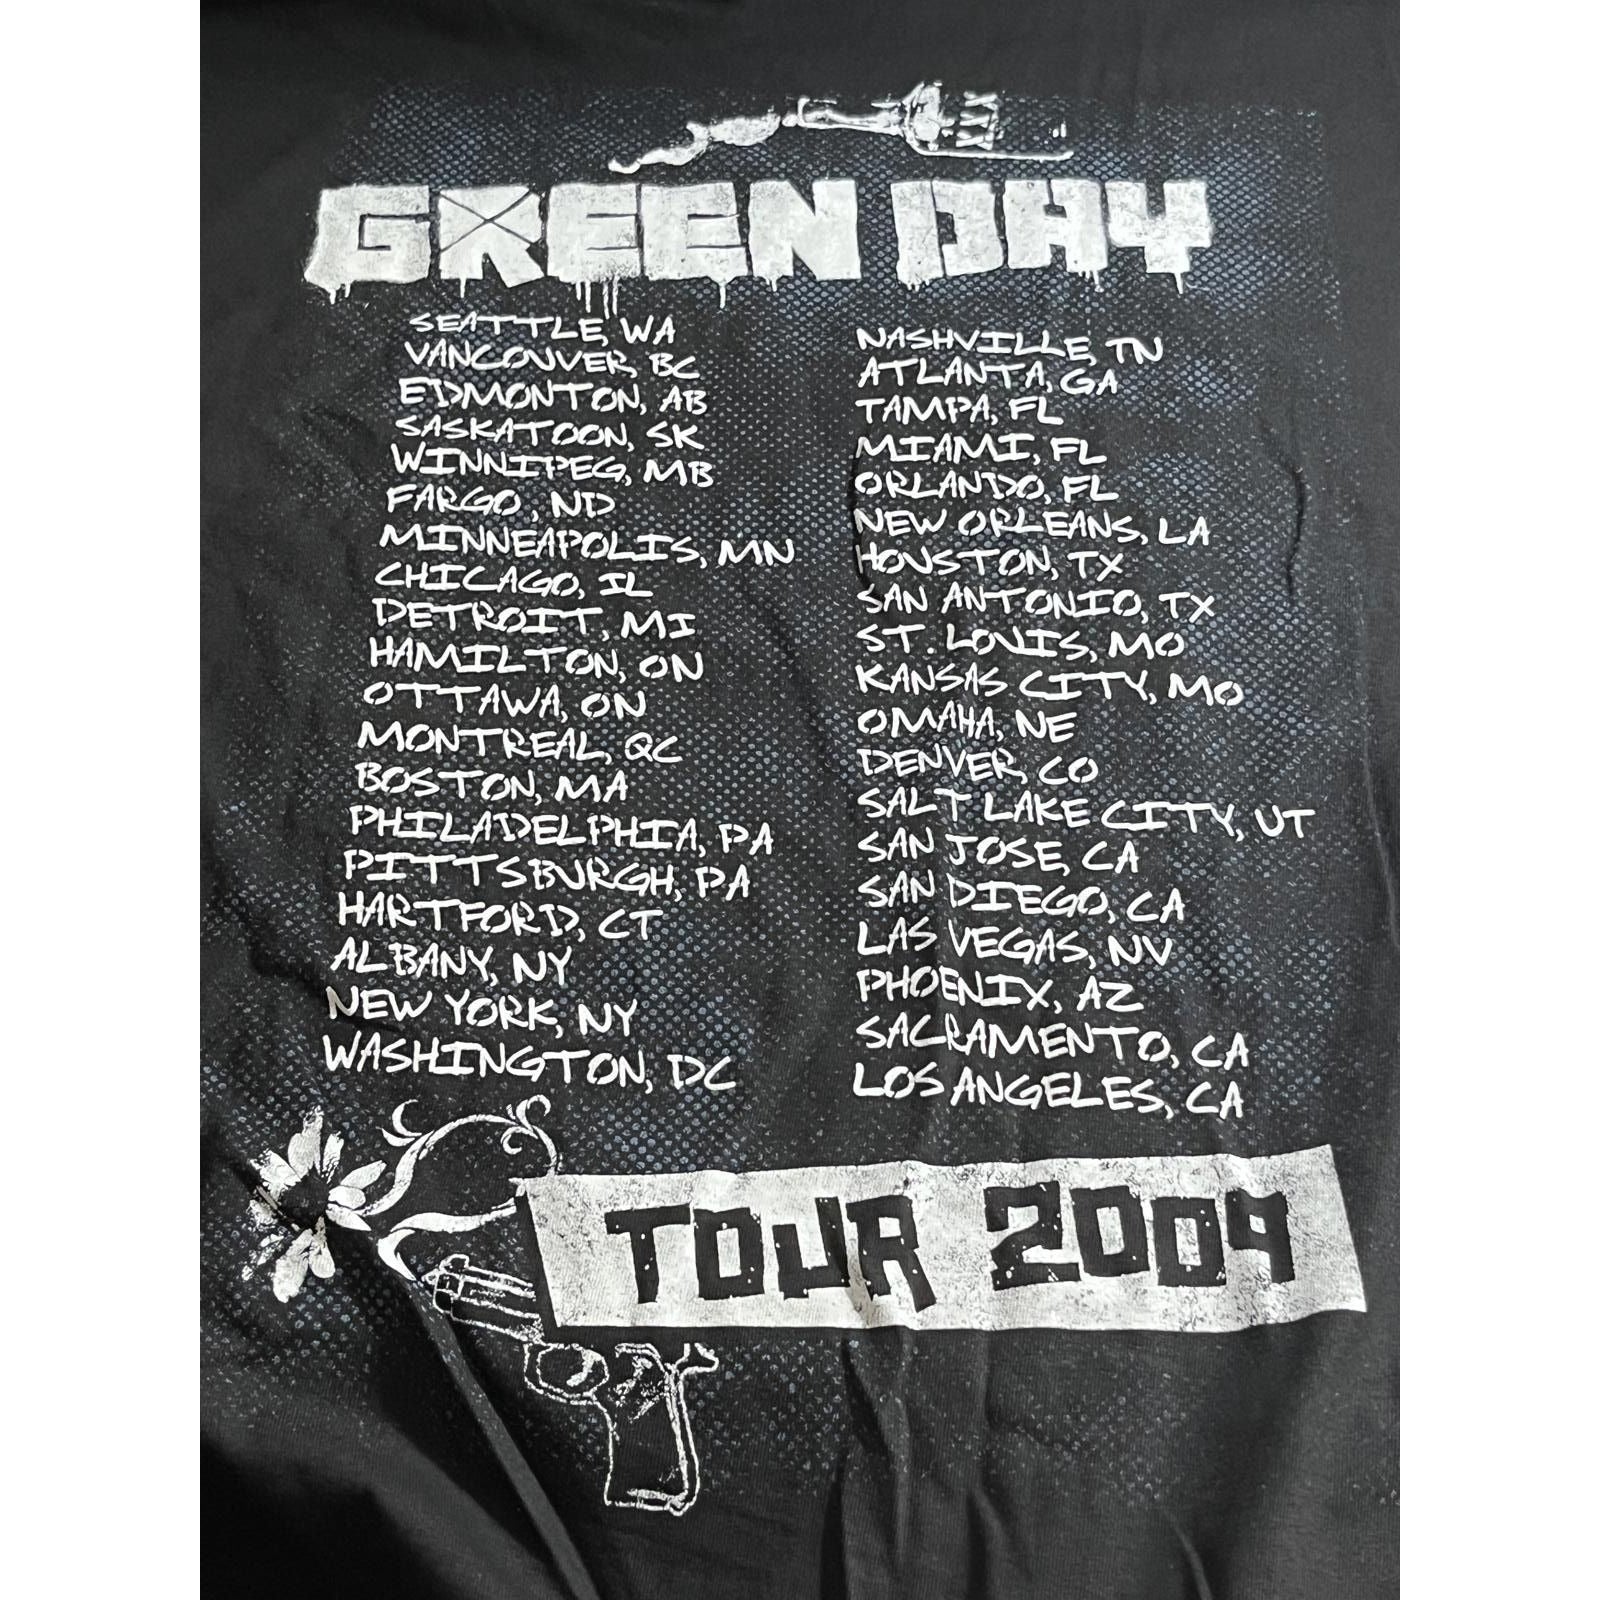 GREEN DAY
SEATTLE, WA
VANCOUVER, BC
EDMONTON, AB
SASKATOON, SK
WINNIPEG, MB
FARGO, ND
MINNEAPOLIS, MN
CHICAGO, IL
DETROIT, MI
HAMILTON, ON
OTTAWA, ON
MONTREAL, QC
BOSTON, MA
PHILADELPHIA, PA
PITTSBURGH, PA
HARTFORD, CT
ALBANY, NY
NEW YORK, NY
WASHINGTON, DC
NASHVILLE, TN
ATLANTA, GA
TAMPA, FL
MIAMI, FL
ORLANDO, FL
NEW ORLEANS, LA
HOUSTON, TX
SAN ANTONIO, TX
ST. LOUIS, MO
KANSAS CITY, MO
OMAHA, NE
DENVER, CO
SALT LAKE CITY, UT
SAN JOSE, CA
SAN DIEGO, CA
LAS VEGAS, NV
PHOENIX, AZ
SACRAMENTO, CA
LOS ANGELES, CA
TOUR 2009